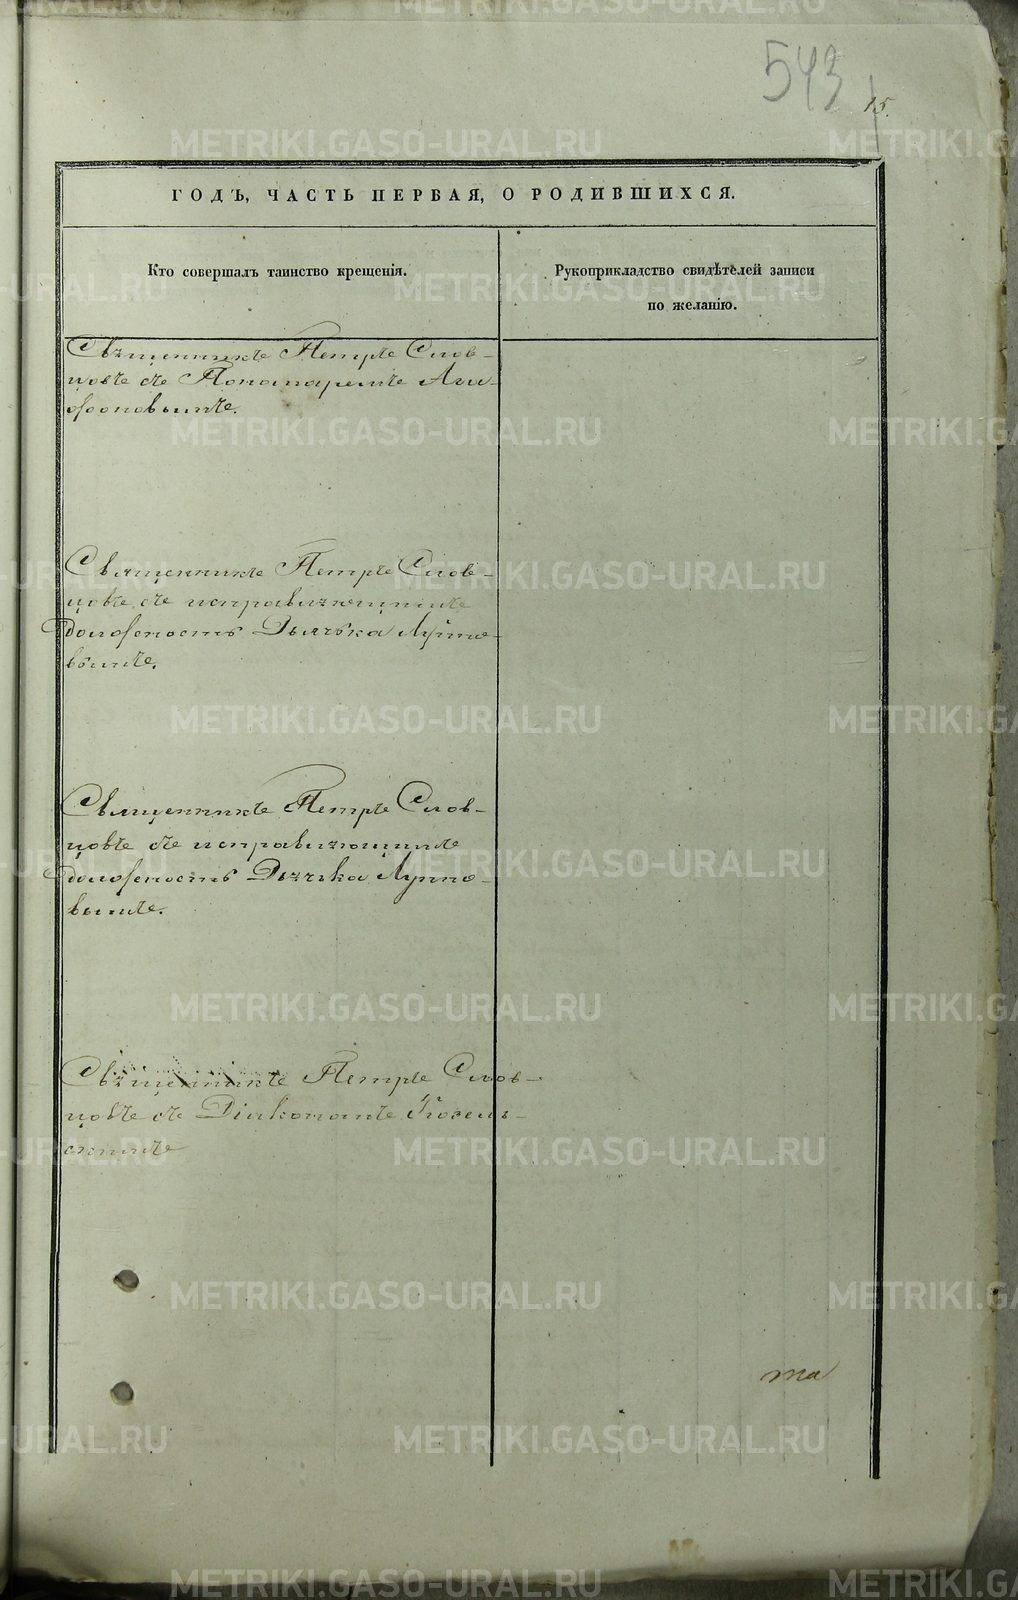 543
15.
ГОДЪ, ЧАСТЬ ПЕРВАЯ, О РОДИВШИХСЯ.
Кто совершалъ таинство крещенія.
Рукоприкладство свидѣтелей записи
по желанію.
Священникъ Петръ Слов-
цовъ съ Пономаремъ Ага-
фоновымъ.
Священникъ Петръ Слов-
цовъ съ исправляющимъ
должность Дьячька Луппо-
вымъ.
Священникъ Петръ Слов-
цовъ съ исправляющимъ
должность Дьячька Луппо-
вымъ.
Священникъ Петръ Слов-
цовъ съ Діакономъ Козель-
скимъ
та
METRIKI.GASO-URAL.RU